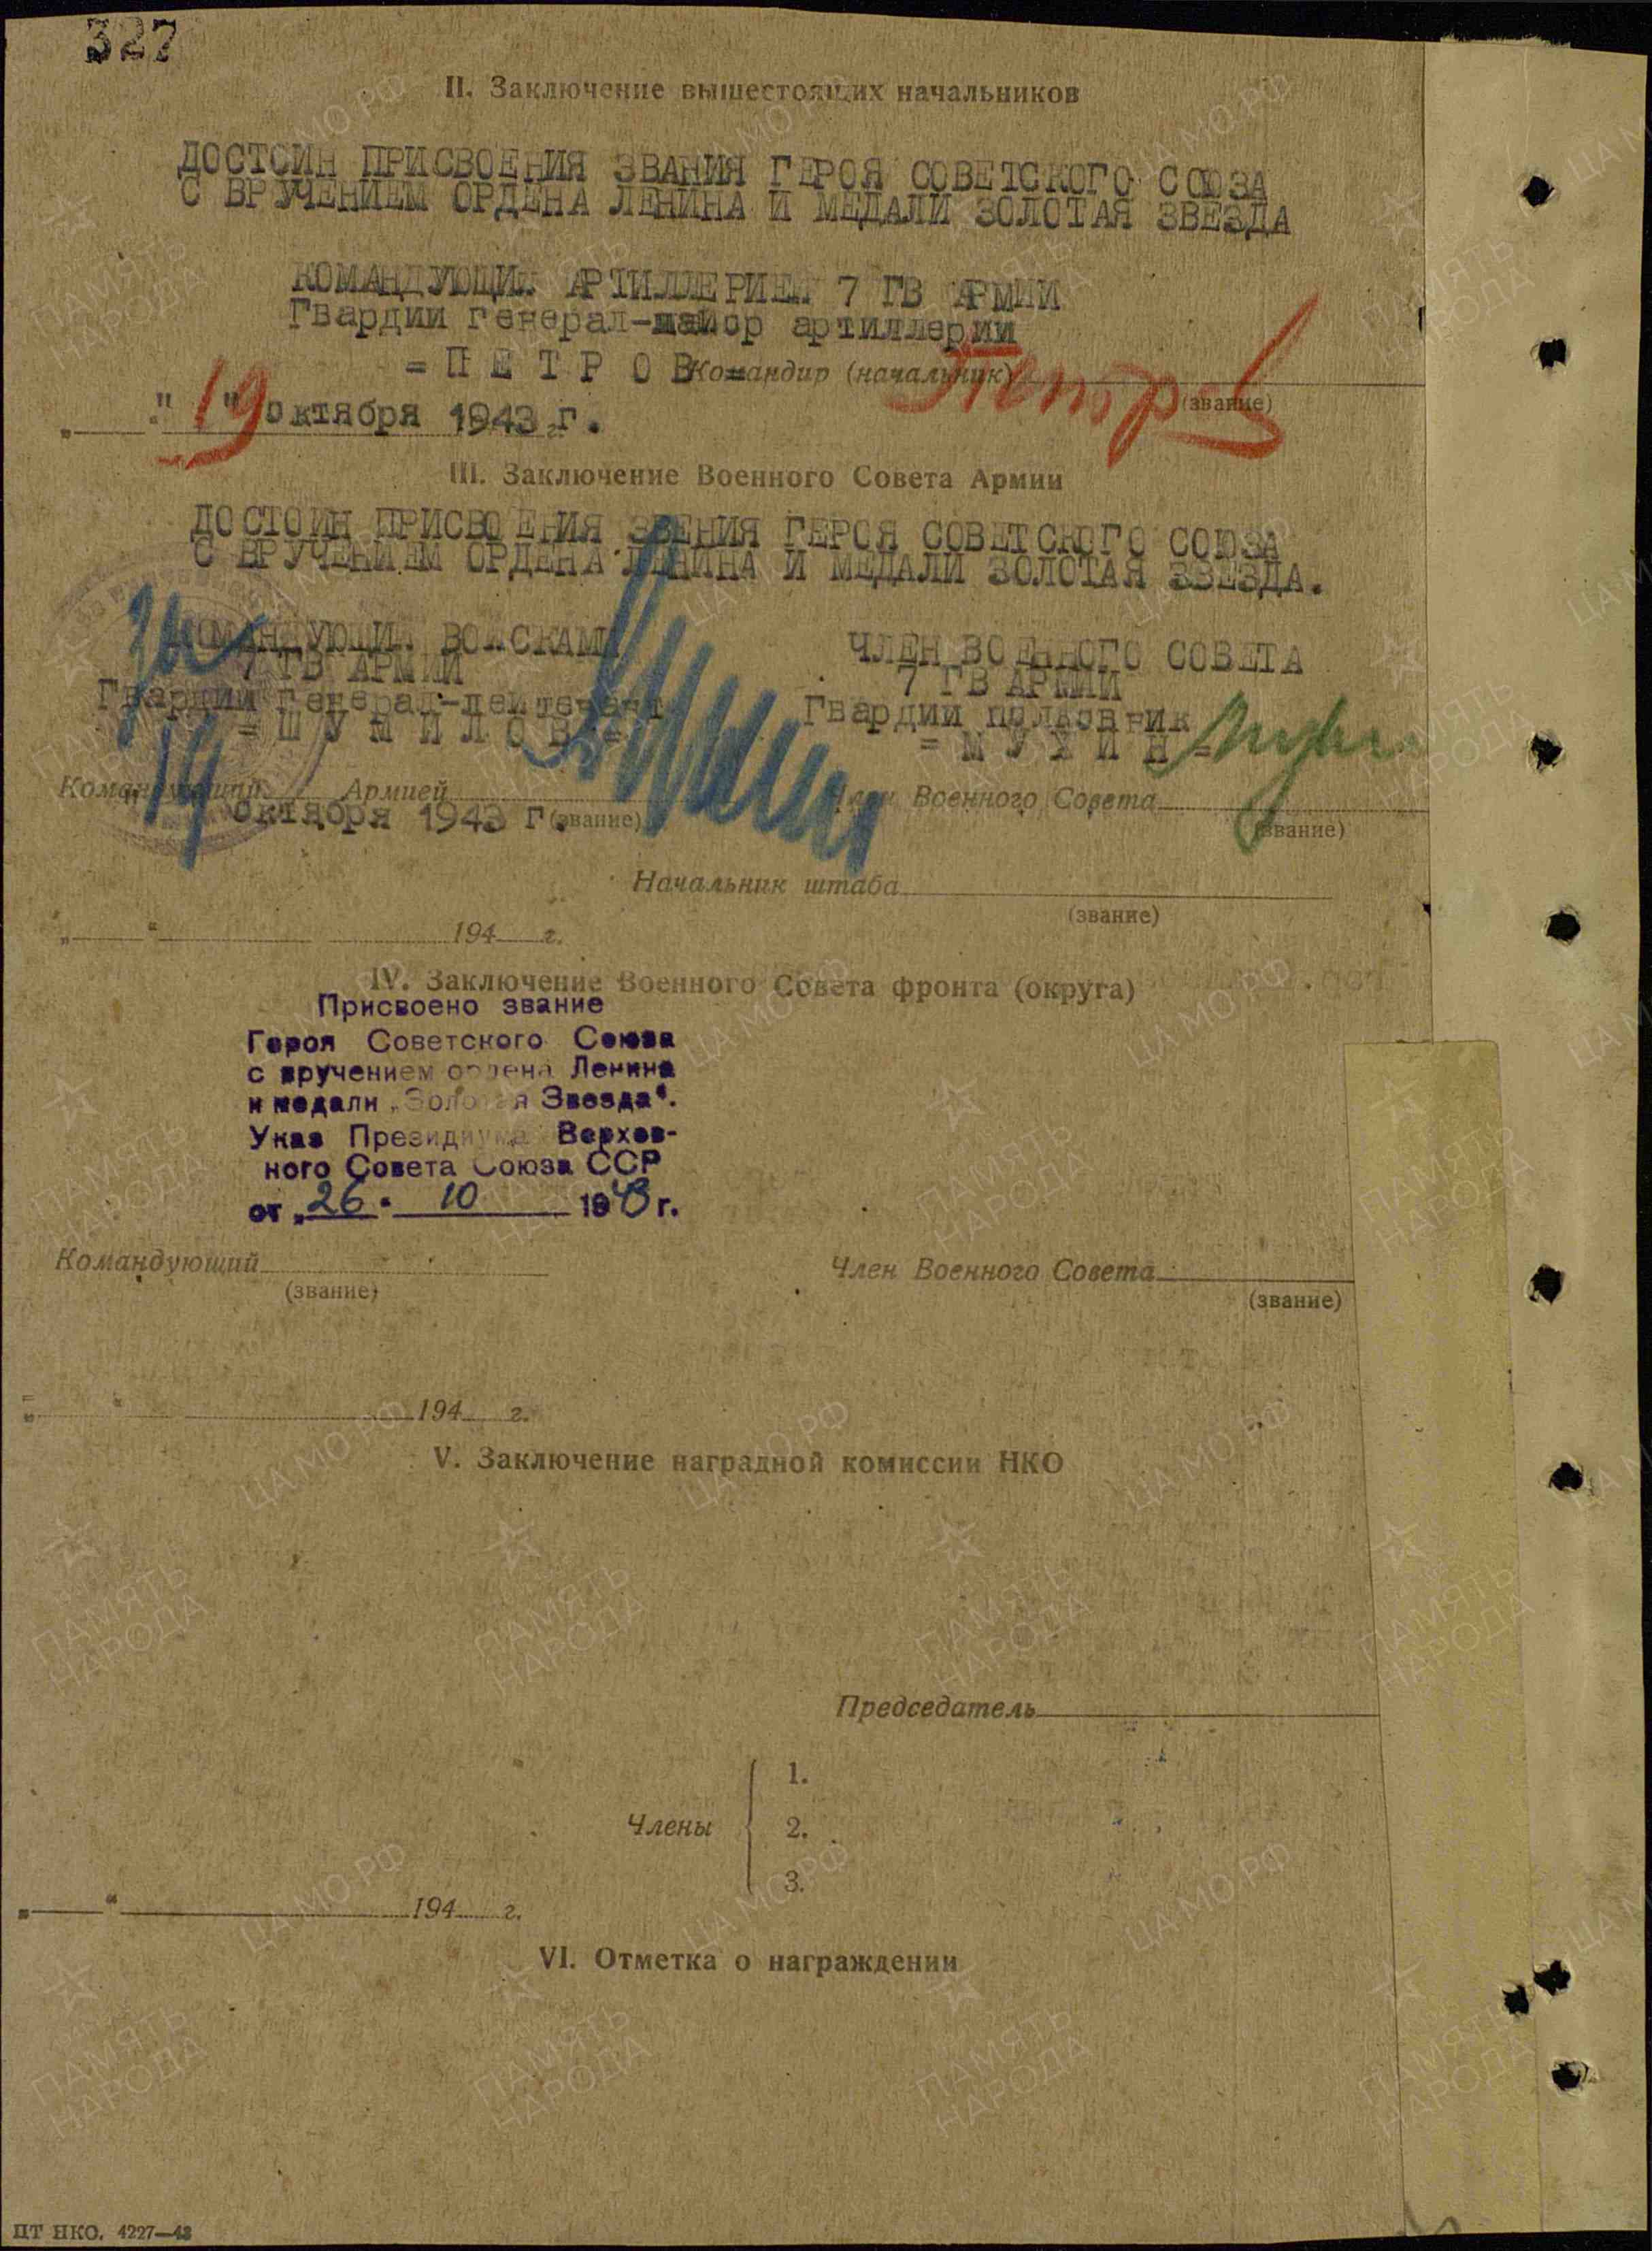 327
II. Заключение вышестоящих начальников
ДОСТОИН ПРИСВОЕНИЯ ЗВАНИЯ ГЕРОЯ СОВЕТСКОГО СОЮЗА
С ВРУЧЕНИЕМ ОРДЕНА ЛЕНИНА И МЕДАЛИ ЗОЛОТАЯ ЗВЕЗДА
КОМАНДУЮЩИЙ АРТИЛЛЕРИЕЙ 7 ГВ АРМИИ
Гвардии генерал-майор артиллерии
=ПЕТРОВ=
Командир (начальник) Петров
(звание)
"19" октября 1943 г.
III. Заключение Военного Совета Армии
ДОСТОИН ПРИСВОЕНИЯ ЗВЕНИЯ ГЕРОЯ СОВЕТСКОГО СОЮЗА
С ВРУЧЕНИЕМ ОРДЕНА ЛЕНИНА И МЕДАЛИ ЗОЛОТАЯ ЗВЕЗДА.
КОМАНДУЮЩИЙ ВОЙСКАМИ
7 ГВ АРМИИ
Гвардии генерал-лейтенант
=ШУМИЛОВ=
ЧЛЕН ВОЕННОГО СОВЕТА
7 ГВ АРМИИ
Гвардии полковник
=МУХИН=
Командующий Армией
(звание)
19 октября 1943 г.
Член Военного Совета
(звание)
Начальник штаба
(звание)
„ “ 194 г.
IV. Заключение Военного Совета фронта (округа)
Присвоено звание
Героя Советского Союза
с вручением ордена Ленина
и медали „Золотая Звезда“.
Указ Президиума Верхов-
ного Совета Союза ССР
от „26“ 10 1943 г.
Командующий
(звание)
Член Военного Совета
(звание)
„ “ 194 г.
V. Заключение наградной комиссии НКО
Председатель
Члены
1.
2.
3.
„ “ 194 г.
VI. Отметка о награждении
ЦТ НКО. 4227—43
ЦА МО РФ
ПАМЯТЬ
НАРОДА